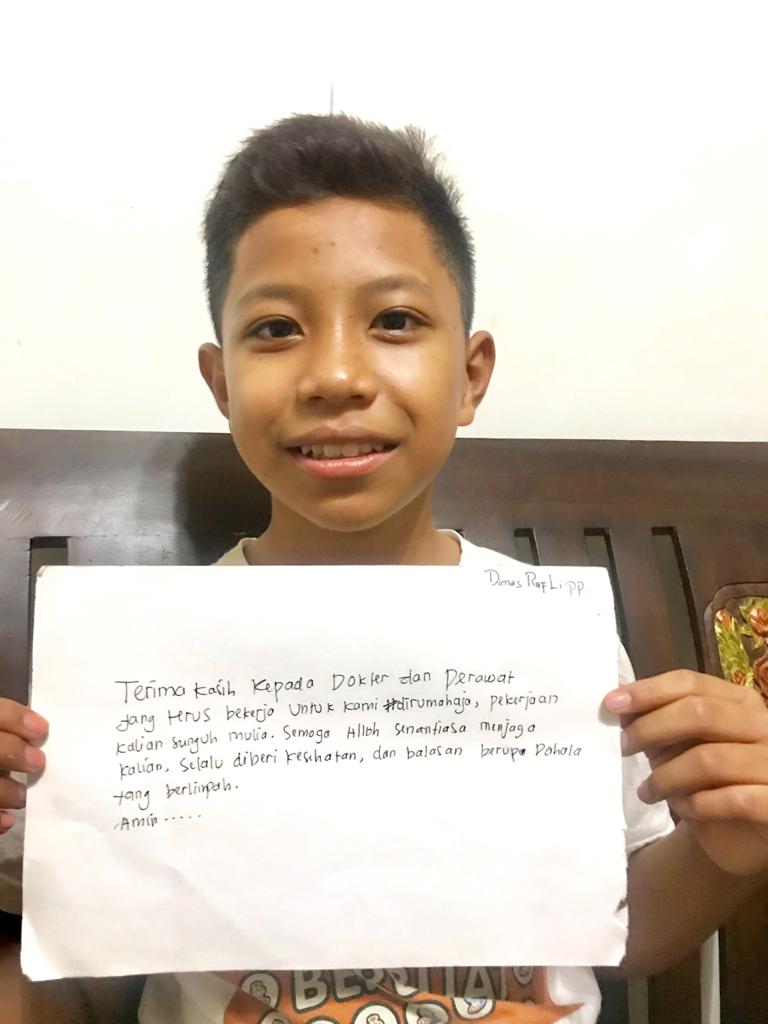 Dimas RafLi .PP.
Terima kasih kepada Dokter dan Perawat
yang terus bekerja untuk kami #dirumahaja, pekerjaan
kalian sunguh mulia. Semoga Allah senantiasa menjaga
kalian, selalu diberi kesehatan, dan balasan berupa Pahala
yang berlimpah.
Amin .....